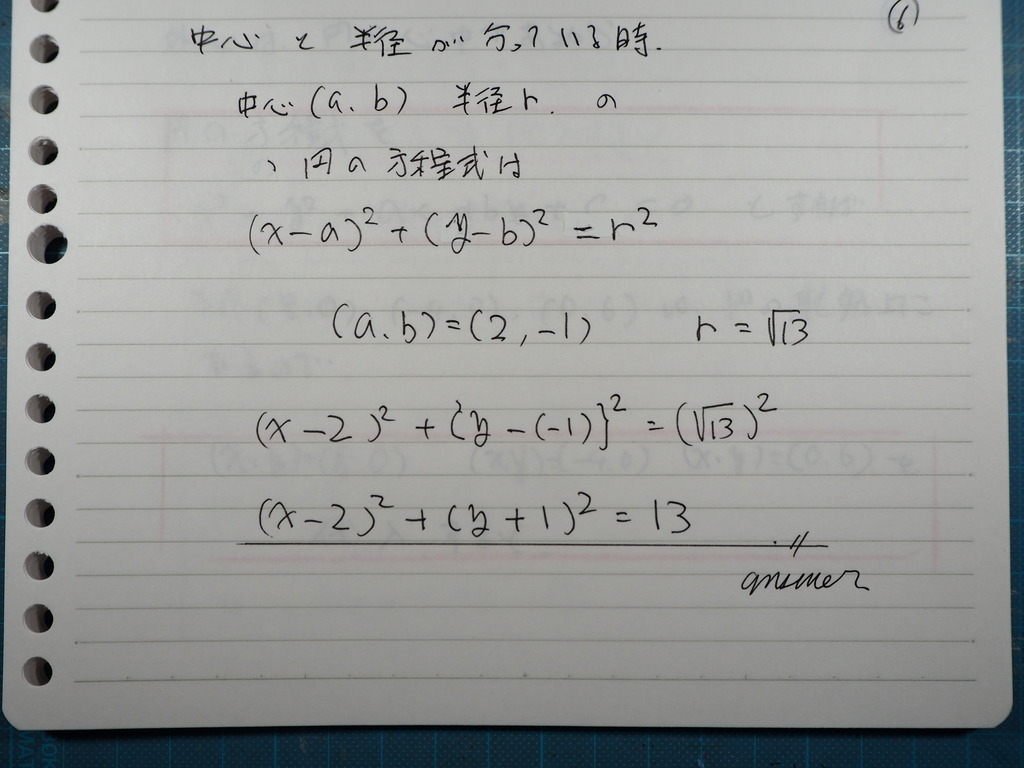 ⑥
中心と半径が分っている時.
中心(a.b) 半径r. の
、円の方程式は
(x-a)² + (y-b)² = r²
(a.b)=(2,-1) r = √13
(x-2)² + {y-(-1)}² = (√13)²
(x-2)² + (y+1)² = 13
answer